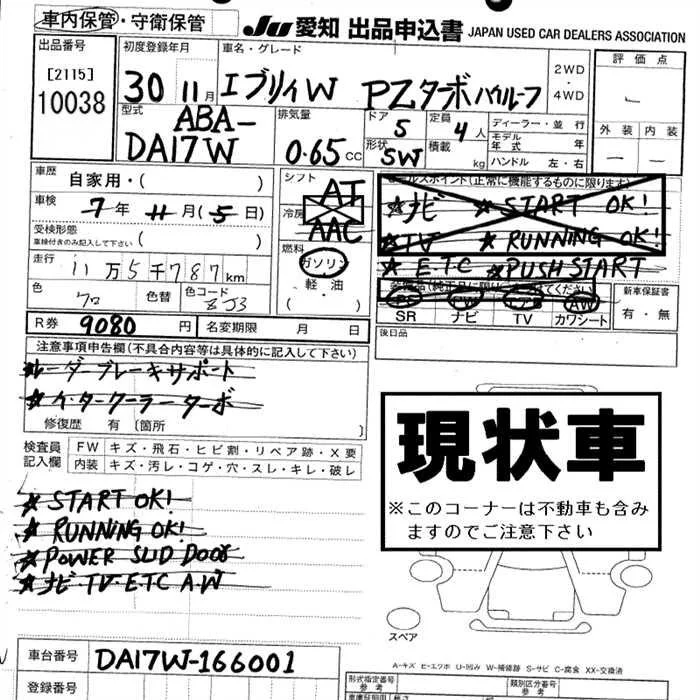 車内保管・守衛保管
JU 愛知 出品申込書 JAPAN USED CAR DEALERS ASSOCIATION
出品番号
[2115]
10038
初度登録年月
30 11月
車名・グレード
エブリィW PZターボハイルーフ
2WD
・
4WD
評価点
外装 内装
型式
ABA-
DA17W
排気量
0.65 CC
ドア
5
形状
5W
定員
4 人
積載
kg
ディーラー・並行
モデル
年式 年
ハンドル 左・右
車歴
自家用・( )
車検
7年 11月(5日)
受検形態
車検付きのみ記入して下さい ( )
走行
11万5千787km
色
クロ
色替
色コード
ZJ3
シフト
AT
冷房
AAC
燃料
ガソリン
・
軽油
( ・ )
セールスポイント(正常に機能するものに限ります)
★ナビ ★START OK!
★TV ★RUNNING OK!
★E.T.C ★PUSH START
装備品(純正品に限り○をつけてください)
PS PW エアB AW
SR ナビ TV カワシート
新車保証書
有・無
後日品
R券 9080 円
名変期限 月 日
注意事項申告欄(不具合内容等は具体的に記入して下さい)
★レーダーブレーキサポート
★インタークーラーターボ
修復歴 有 〔箇所
検査員
記入欄
FW キズ・飛石・ヒビ割・リペア跡・X要
内装 キズ・汚レ・コゲ・穴・スレ・キレ・破レ
★START OK!
★RUNNING OK!
★POWER SLID DOOR
★ナビ・TV・E.T.C A.W
現状車
※このコーナーは不動車も含み
ますのでご注意下さい
スペア
A-キズ E-エクボ U-凹み W-補修跡 S-サビ C-腐食 XX-交換済
車台番号
DA17W-166001
登録番号
形式指定番号
参考
類別区分番号
参考